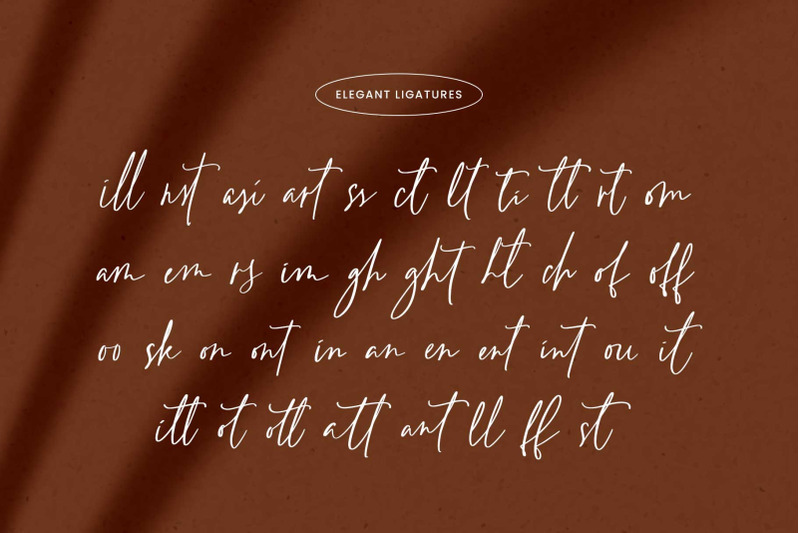 ELEGANT LIGATURES
ill nst asi art ss ct lt ti tt rt om
am em rs im gh ght ht ch of off
oo sk on ont in an en ent int ou it
itt ot ott att ant ll ff st